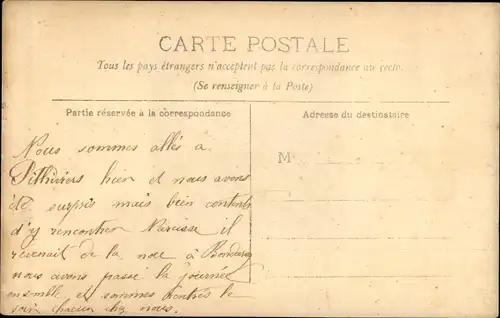 CARTE POSTALE
Tous les pays étrangers n'acceptent pas la correspondance au recto.
(Se renseigner à la Poste)
Partie réservée à la correspondance
Adresse du destinataire
M
Nous sommes allés a
Pithiviers hier et nous avons
été surpris mais bien contents
d'y rencontrer Narcisse il
revenait de la noce à
nous avons passé la journée
ensemble et sommes rentrés le
soir chacun chez nous.